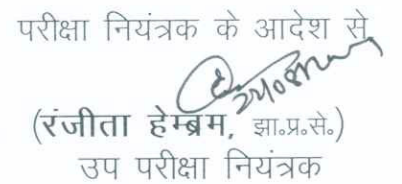 परीक्षा नियंत्रक के आदेश से
(रंजीता हेम्ब्रम, झा.प्र.से.)
उप परीक्षा नियंत्रक